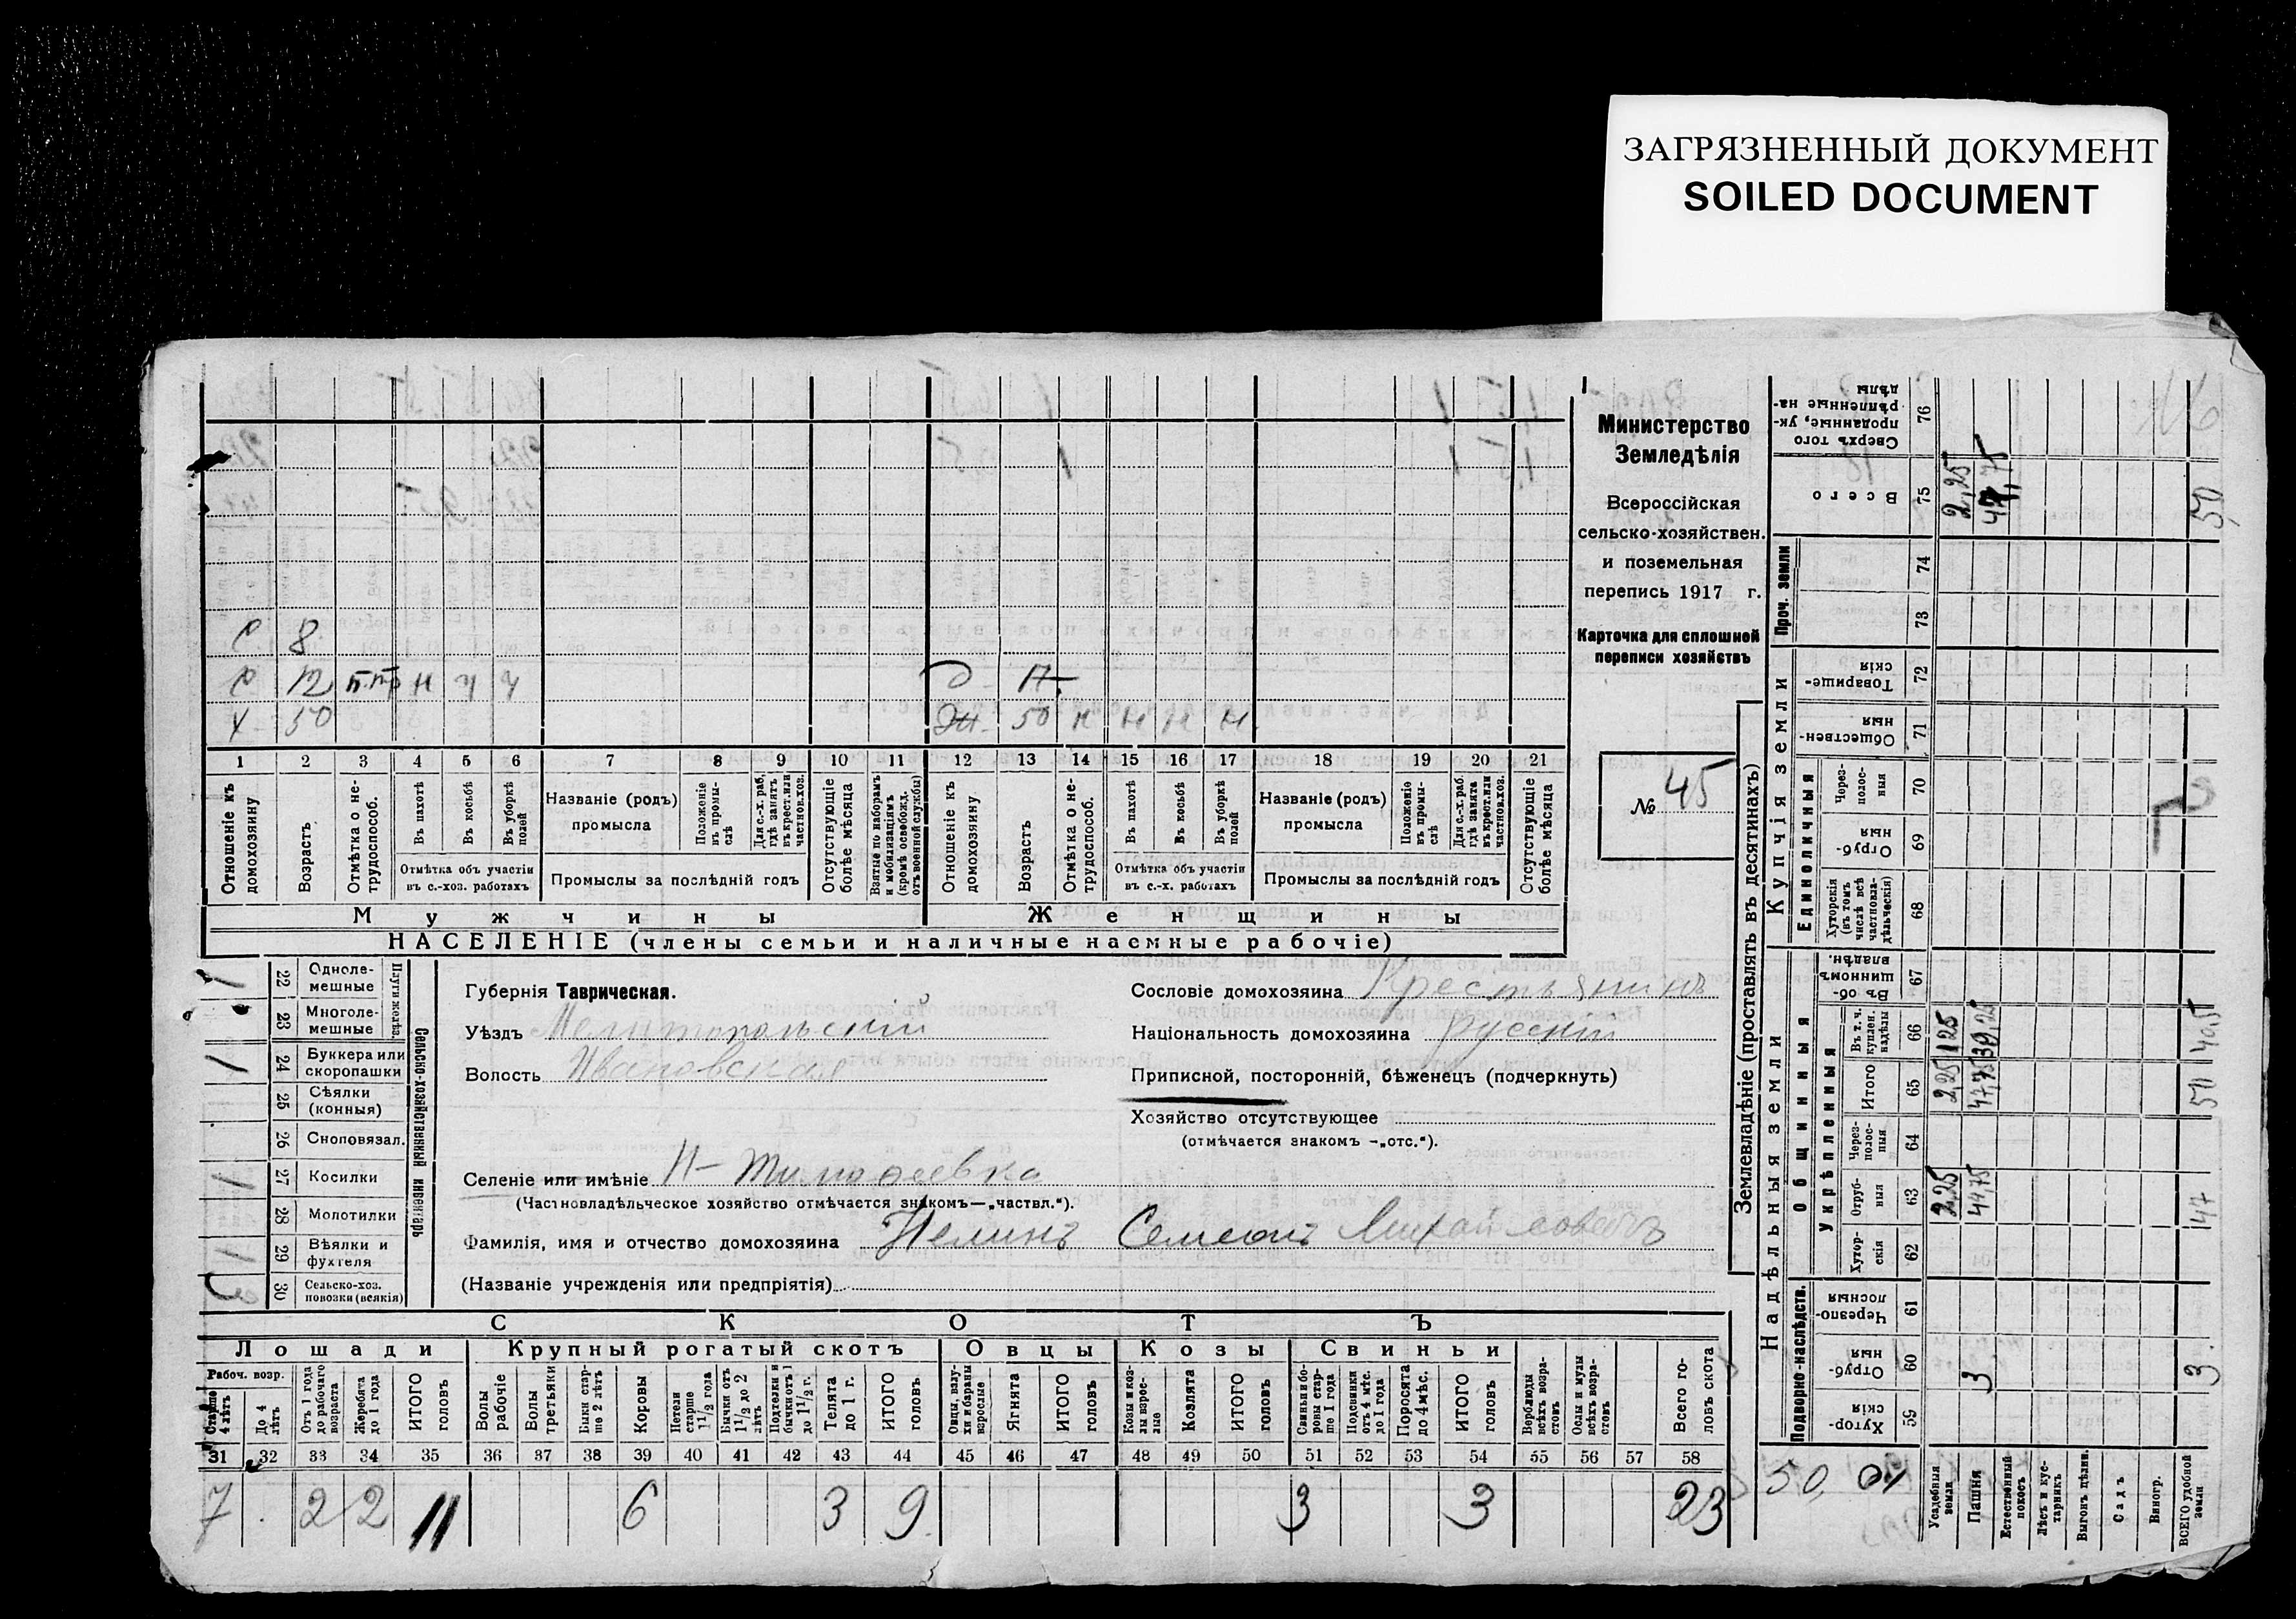 ЗАГРЯЗНЕННЫЙ ДОКУМЕНТ
SOILED DOCUMENT
Министерство
Земледѣлія
Всероссійская
сельско-хозяйствен.
и поземельная
перепись 1917 г.
Карточка для сплошной
переписи хозяйствъ
№ 45
С 8
С 12 н ч ч
Х 50
Д 17
Ж 50 н н н н
1 2 3 4 5 6 7 8 9 10 11 12 13 14 15 16 17 18 19 20 21
Отношеніе къ домохозяину
Возрастъ
Отмѣтка о нетрудоспособ.
Въ пахотѣ
Въ косьбѣ
Въ уборкѣ полей
Отмѣтка объ участіи въ с.-хоз. работахъ
Названіе (родъ) промысла
Положеніе въ промы-слѣ
Для с.-х. раб. гдѣ занятъ въ крест. или частнов. хоз.
Промыслы за послѣдній годъ
Отсутствующіе болѣе мѣсяца
Взятые по наборамъ и мобилизаціямъ (кромѣ освобожд. отъ военной службы)
Отношеніе къ домохозяину
Возрастъ
Отмѣтка о нетрудоспособ.
Въ пахотѣ
Въ косьбѣ
Въ уборкѣ полей
Отмѣтка объ участіи въ с.-х. работахъ
Названіе (родъ) промысла
Положеніе въ промы-слѣ
Для с.-х. раб. гдѣ занята въ крест. или частнов. хоз.
Промыслы за послѣдній годъ
Отсутствующіе болѣе мѣсяца
Мужчины Женщины
НАСЕЛЕНІЕ (члены семьи и наличные наемные рабочіе)
Сельско-хозяйственный инвентарь
Плуги желѣз.
22 Одноле-мешные 1
23 Многоле-мешные
24 Буккера или скоропашки 1
25 Сѣялки (конныя)
26 Сноповязал.
27 Косилки 1
28 Молотилки
29 Вѣялки и фухтеля 1
30 Сельско-хоз. повозки (всякія)
Губернія Таврическая.
Уѣздъ Мелитопольскій
Волость Ивановская
Селеніе или имѣніе Н-Тимофеевка
(Частновладѣльческое хозяйство отмѣчается знакомъ—„частвл.“).
Фамилія, имя и отчество домохозяина Нелинъ Семеонъ Михайловичъ
(Названіе учрежденія или предпріятія)
Сословіе домохозяина Крестьянинъ
Національность домохозяина русскій
Приписной, посторонній, бѣженецъ (подчеркнуть)
Хозяйство отсутствующее
(отмѣчается знакомъ –„отс.“).
СКОТЪ
Лошади Крупный рогатый скотъ Овцы Козы Свиньи
Рабоч. возр.
Старше 4 лѣтъ
До 4 лѣтъ
Отъ 1 года до рабочаго возраста
Жеребята до 1 года
ИТОГО головъ
Волы рабочіе
Волы третьяки
Быки стар-ше 2 лѣтъ
Коровы
Нетели старше 1 1/2 года
Бычки отъ 1 1/2 до 2 лѣтъ
Подтелки и бычки отъ 1 до 1 1/2 г.
Телята до 1 г.
ИТОГО головъ
Овцы, валу-хи и бараны взрослые
Ягнята
ИТОГО головъ
Козы и коз-лы взрос-лые
Козлята
ИТОГО головъ
Свиньи и бо-ровы стар-ше 1 года
Подсвинки отъ 4 мѣс. до 1 года
Поросята до 4 мѣс.
ИТОГО головъ
Верблюды всѣхъ возра-стовъ
Ослы и мулы всѣхъ возра-стовъ
Всего го-ловъ скота
31 32 33 34 35 36 37 38 39 40 41 42 43 44 45 46 47 48 49 50 51 52 53 54 55 56 57 58
7 2 2 11 6 3 9 3 3 23
Землевладѣніе (проставлять въ десятинахъ)
Надѣльныя земли Купчія земли Проч. земли
Подворно-наслѣдств.
Общинныя
Укрѣпленныя
Единоличныя
Хутор-скія 59
Отруб-ныя 60
Черезпо-лосныя 61
Хутор-скія 62
Отруб-ныя 63
Через-полос-ныя 64
Итого 65
Въ т. ч. куплен. надѣлы 66
Въ об-щинномъ владѣн. 67
Хуторскія (въ томъ числѣ всѣ частновла-дѣльческія) 68
Отруб-ныя 69
Через-полос-ныя 70
Обществен-ныя 71
Товарище-скія 72
73
74
Всего 75
Сверхъ того проданные, ук-рѣпленные на-дѣлы 76
Усадебныя земли 2,25 2,25 1,25 2,25
Пашня 3 44,75 47,75 39,25 47,75
Естественный покосъ
Лѣсъ и кус-тарникъ
Выгонъ цѣлин.
Садъ
Виногр.
ВСЕГО удобной земли 3 47 50 40,5 50